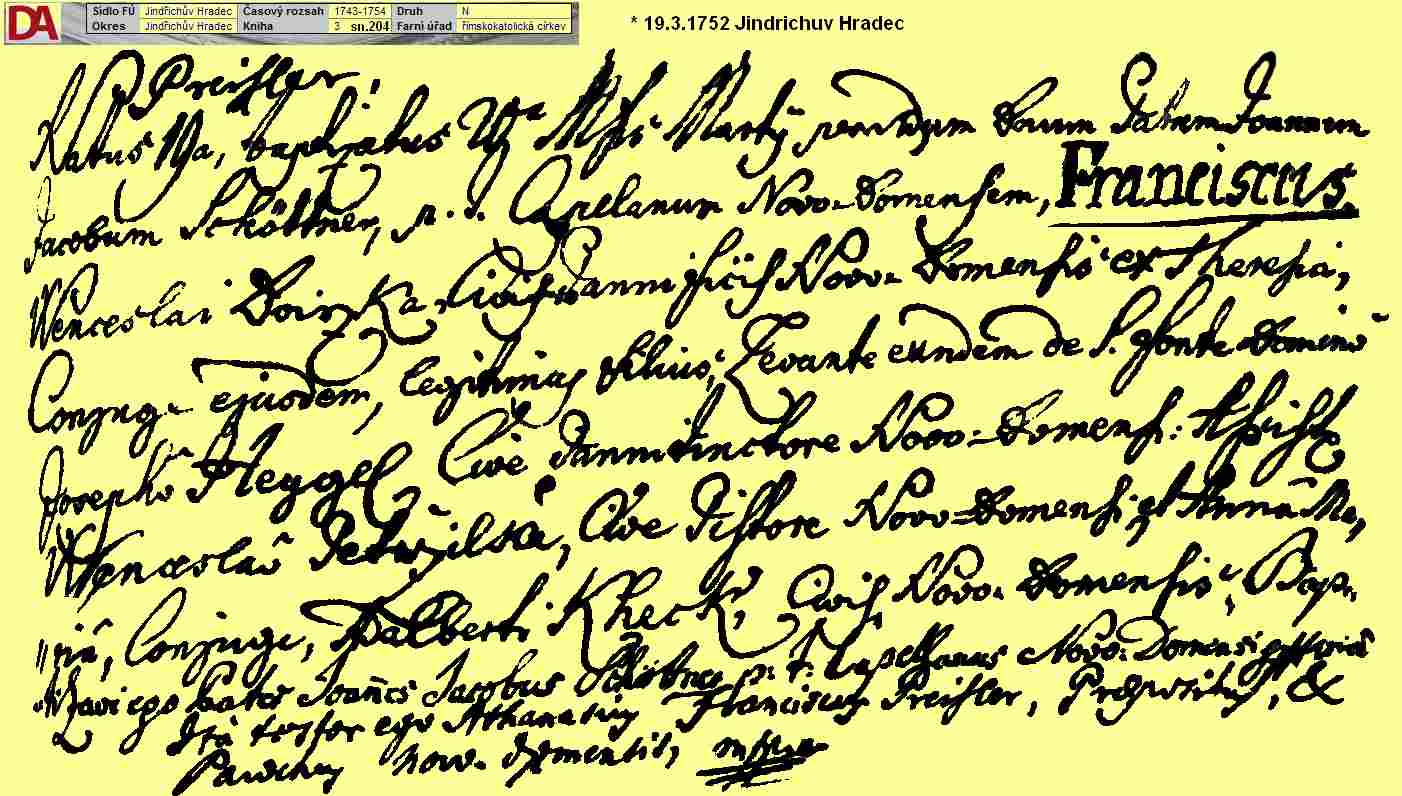 DA Sídlo FÚ Jindřichův Hradec Časový rozsah 1743-1754 Druh N
Okres Jindřichův Hradec Kniha 3 sn.204 Farní úřad římskokatolická církev
* 19.3.1752 Jindrichuv Hradec
P Preisler
Natus 19a, baptizatus Mensis Martÿ per Patrem Joannem
Jacobum Schöttner, p. t. Capelanum Novo-Domensem, Franciscus
Wenceslai Civis Novo-Domensis ex Theresia,
Conjuge ejusdem, legitimus filius, Levante eundem de S. fonte Domino
Josepho Heygel Cive Pannitinctore Novo-Domensi: Assist:
Wenceslao Cive Pistore Novo-Domensi et Anna Ma,
ria, Conjuge, Adalberti Kheck, Civis Novo-Domensis, Bap-
tizavi ego Pater Joanes Jacobus Schötner p: t: Capellanus Novo: Domensis
Ita testor ego Athanasius Franciscus Preisler, Praepositus, &
Parochus Novo-Domensis, mppa